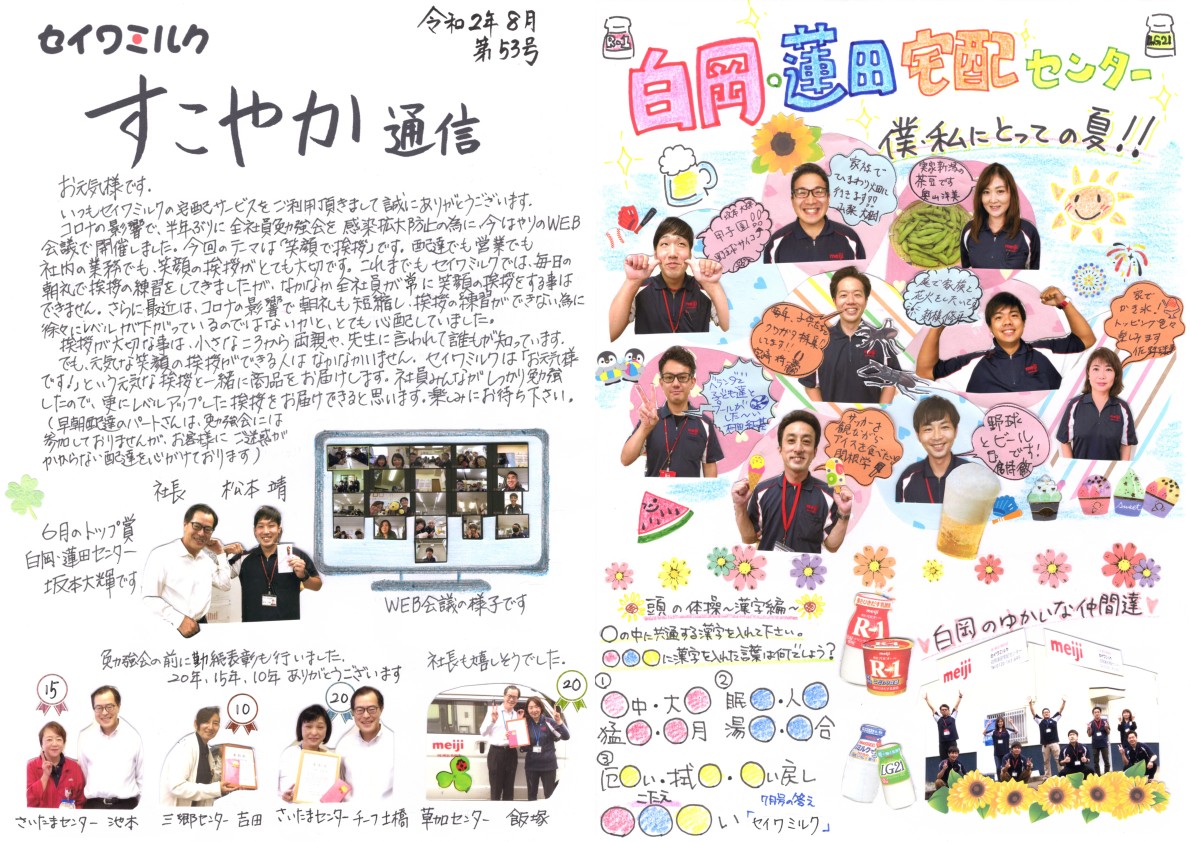 セイワミルク
令和2年8月
第53号
すこやか通信
お元気様です。
いつもセイワミルクの宅配サービスをご利用頂きまして誠にありがとうございます。
コロナの影響で、半年ぶりに全社員勉強会を感染拡大防止の為に、今はやりのWEB
会議で開催しました。今回のテーマは「笑顔で挨拶」です。配達でも営業でも
社内の業務でも、笑顔の挨拶がとても大切です。これまでもセイワミルクでは、毎日の
朝礼で挨拶の練習をしてきましたが、なかなか全社員が常に笑顔の挨拶をする事は
できません。さらに最近は、コロナの影響で朝礼も短縮し、挨拶の練習ができない為に
徐々にレベルが下がっているのではないかと、とても心配していました。
挨拶が大切な事は、小さなころから両親や、先生に言われて誰もが知っています。
でも、元気な笑顔の挨拶ができる人はなかなかいません。セイワミルクは「お元気様
です!」という元気な挨拶と一緒に商品をお届けします。社員みんながしっかり勉強
したので、更にレベルアップした挨拶をお届けできると思います。楽しみにお待ち下さい。
(早朝配達のパートさんは、勉強会には
参加しておりませんが、お客様にご迷惑が
かからない配達を心がけております)
社長 松本 靖
6月のトップ賞
白岡・蓮田センター
坂本大輝です
WEB会議の様子です
勉強会の前に勤続表彰も行いました。
20年、15年、10年 ありがとうございます
社長も嬉しそうでした。
15
10
20
20
meiji
さいたまセンター 池本
三郷センター 吉田
さいたまセンター チーフ土橋
草加センター 飯塚
R-1
LG21
白岡・蓮田宅配センター
僕・私にとっての夏!!
家族で
ひまわり畑に
行きます!!
実家新潟の
茶豆です
奥山洋美
甲子園!!
庭で家族と
花火をしたいです
家で
かき氷!
トッピング色々
楽しみます
ベランダで
子ども達と
プールが
した〜い
サッカーを
観ながら
アイスを食べたい
関根学
野球
とビール
です!
sweet
頭の体操〜漢字編〜
○の中に共通する漢字を入れて下さい。
○○○に漢字を入れた言葉は何でしょう?
①
○中・大○
猛○・○月
②
眠○・人○
湯○・○合
③
厄○い・拭○・○い戻し
こたえ
○○○い
7月号の答え
「セイワミルク」
meiji
R-1
meiji
R-1
LG21
白岡のゆかいな仲間達
meiji
meiji